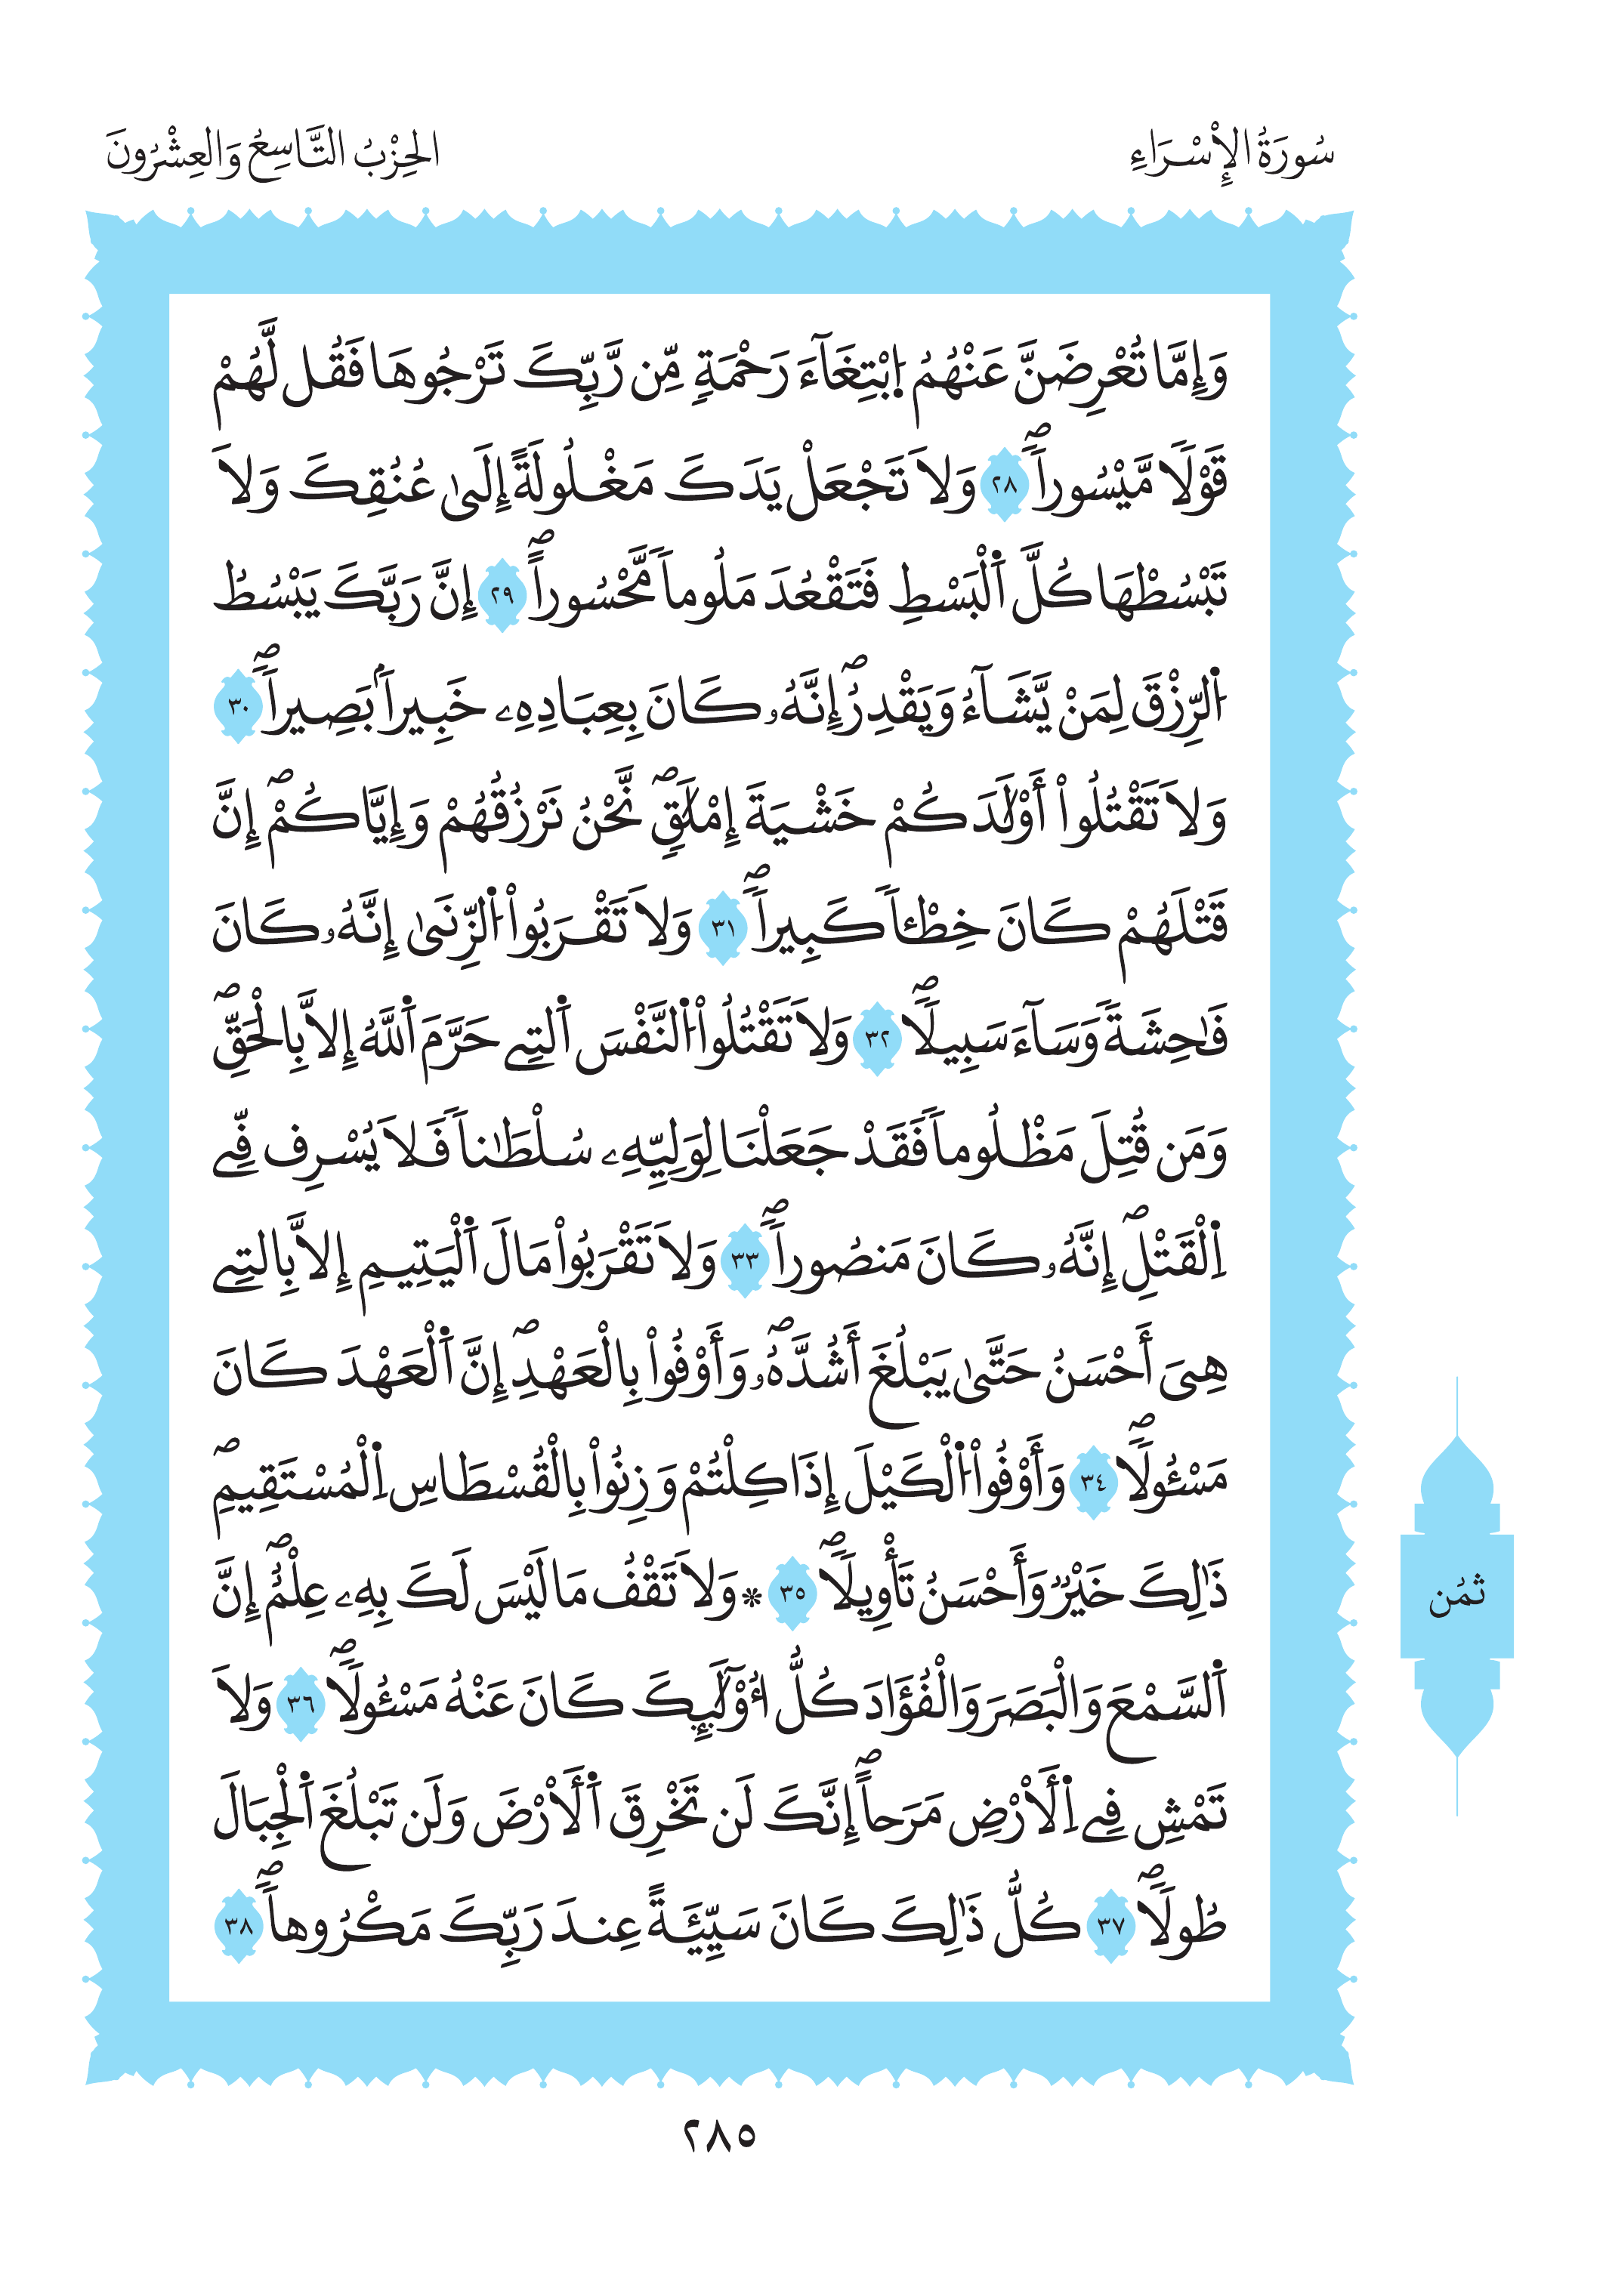 سُورَةُ الإِسْرَاءِ
الحِزْبُ التَّاسِعُ وَالعِشْرُونَ
وَإِمَّا تُعْرِضَنَّ عَنْهُمُ اُ۪بْتِغَآءَ رَحْمَةٖ مِّن رَّبِّكَ تَرْجُوهَا فَقُل لَّهُمْ
قَوْلٗا مَّيْسُوراٗۖ ٢٨ وَلَا تَجْعَلْ يَدَكَ مَغْلُولَةً إِلَىٰ عُنُقِكَ وَلَا
تَبْسُطْهَا كُلَّ اَ۬لْبَسْطِ فَتَقْعُدَ مَلُوماٗ مَّحْسُوراًۖ ٢٩ إِنَّ رَبَّكَ يَبْسُطُ
اُ۬لرِّزْقَ لِمَنْ يَّشَآءُ وَيَقْدِرُۖ إِنَّهُۥ كَانَ بِعِبَادِهِۦ خَبِيراَۢ بَصِيراٗۖ ٣٠
وَلَا تَقْتُلُواْ أَوْلَٰدَكُمْ خَشْيَةَ إِمْلَٰقٖۖ نَّحْنُ نَرْزُقُهُمْ وَإِيَّاكُمْۖ إِنَّ
قَتْلَهُمْ كَانَ خِطْـٔاٗ كَبِيراٗۖ ٣١ وَلَا تَقْرَبُواْ اُ۬لزِّنَىٰ إِنَّهُۥ كَانَ
فَٰحِشَةٗ وَسَآءَ سَبِيلاٗۖ ٣٢ وَلَا تَقْتُلُواْ اُ۬لنَّفْسَ اَ۬لتِے حَرَّمَ اَ۬للَّهُ إِلَّا بِالْحَقِّۖ
وَمَن قُتِلَ مَظْلُوماٗ فَقَدْ جَعَلْنَا لِوَلِيِّهِۦ سُلْطَٰناٗ فَلَا يُسْرِف فِّے
اِ۬لْقَتْلِۖ إِنَّهُۥ كَانَ مَنصُوراٗۖ ٣٣ وَلَا تَقْرَبُواْ مَالَ اَ۬لْيَتِيمِ إِلَّا بِالتِے
هِيَ أَحْسَنُ حَتَّىٰ يَبْلُغَ أَشُدَّهُۥۖ وَأَوْفُواْ بِالْعَهْدِۖ إِنَّ اَ۬لْعَهْدَ كَانَ
مَسْـُٔولاٗۖ ٣٤ وَأَوْفُواْ اُ۬لْكَيْلَ إِذَا كِلْتُمْ وَزِنُواْ بِالْقُسْطَاسِ اِ۬لْمُسْتَقِيمِۖ
ذَٰلِكَ خَيْرٞ وَأَحْسَنُ تَأْوِيلاٗۖ ٣٥ * وَلَا تَقْفُ مَا لَيْسَ لَكَ بِهِۦ عِلْمٌۖ إِنَّ
اَ۬لسَّمْعَ وَالْبَصَرَ وَالْفُؤَادَ كُلُّ أُوْلَٰٓئِكَ كَانَ عَنْهُ مَسْـُٔولاٗۖ ٣٦ وَلَا
تَمْشِ فِے اِ۬لْأَرْضِ مَرَحاًۖ إِنَّكَ لَن تَخْرِقَ اَ۬لْأَرْضَ وَلَن تَبْلُغَ اَ۬لْجِبَالَ
طُولاٗۖ ٣٧ كُلُّ ذَٰلِكَ كَانَ سَيِّئَةً عِندَ رَبِّكَ مَكْرُوهاٗۖ ٣٨
ثُمُن
٢٨٥